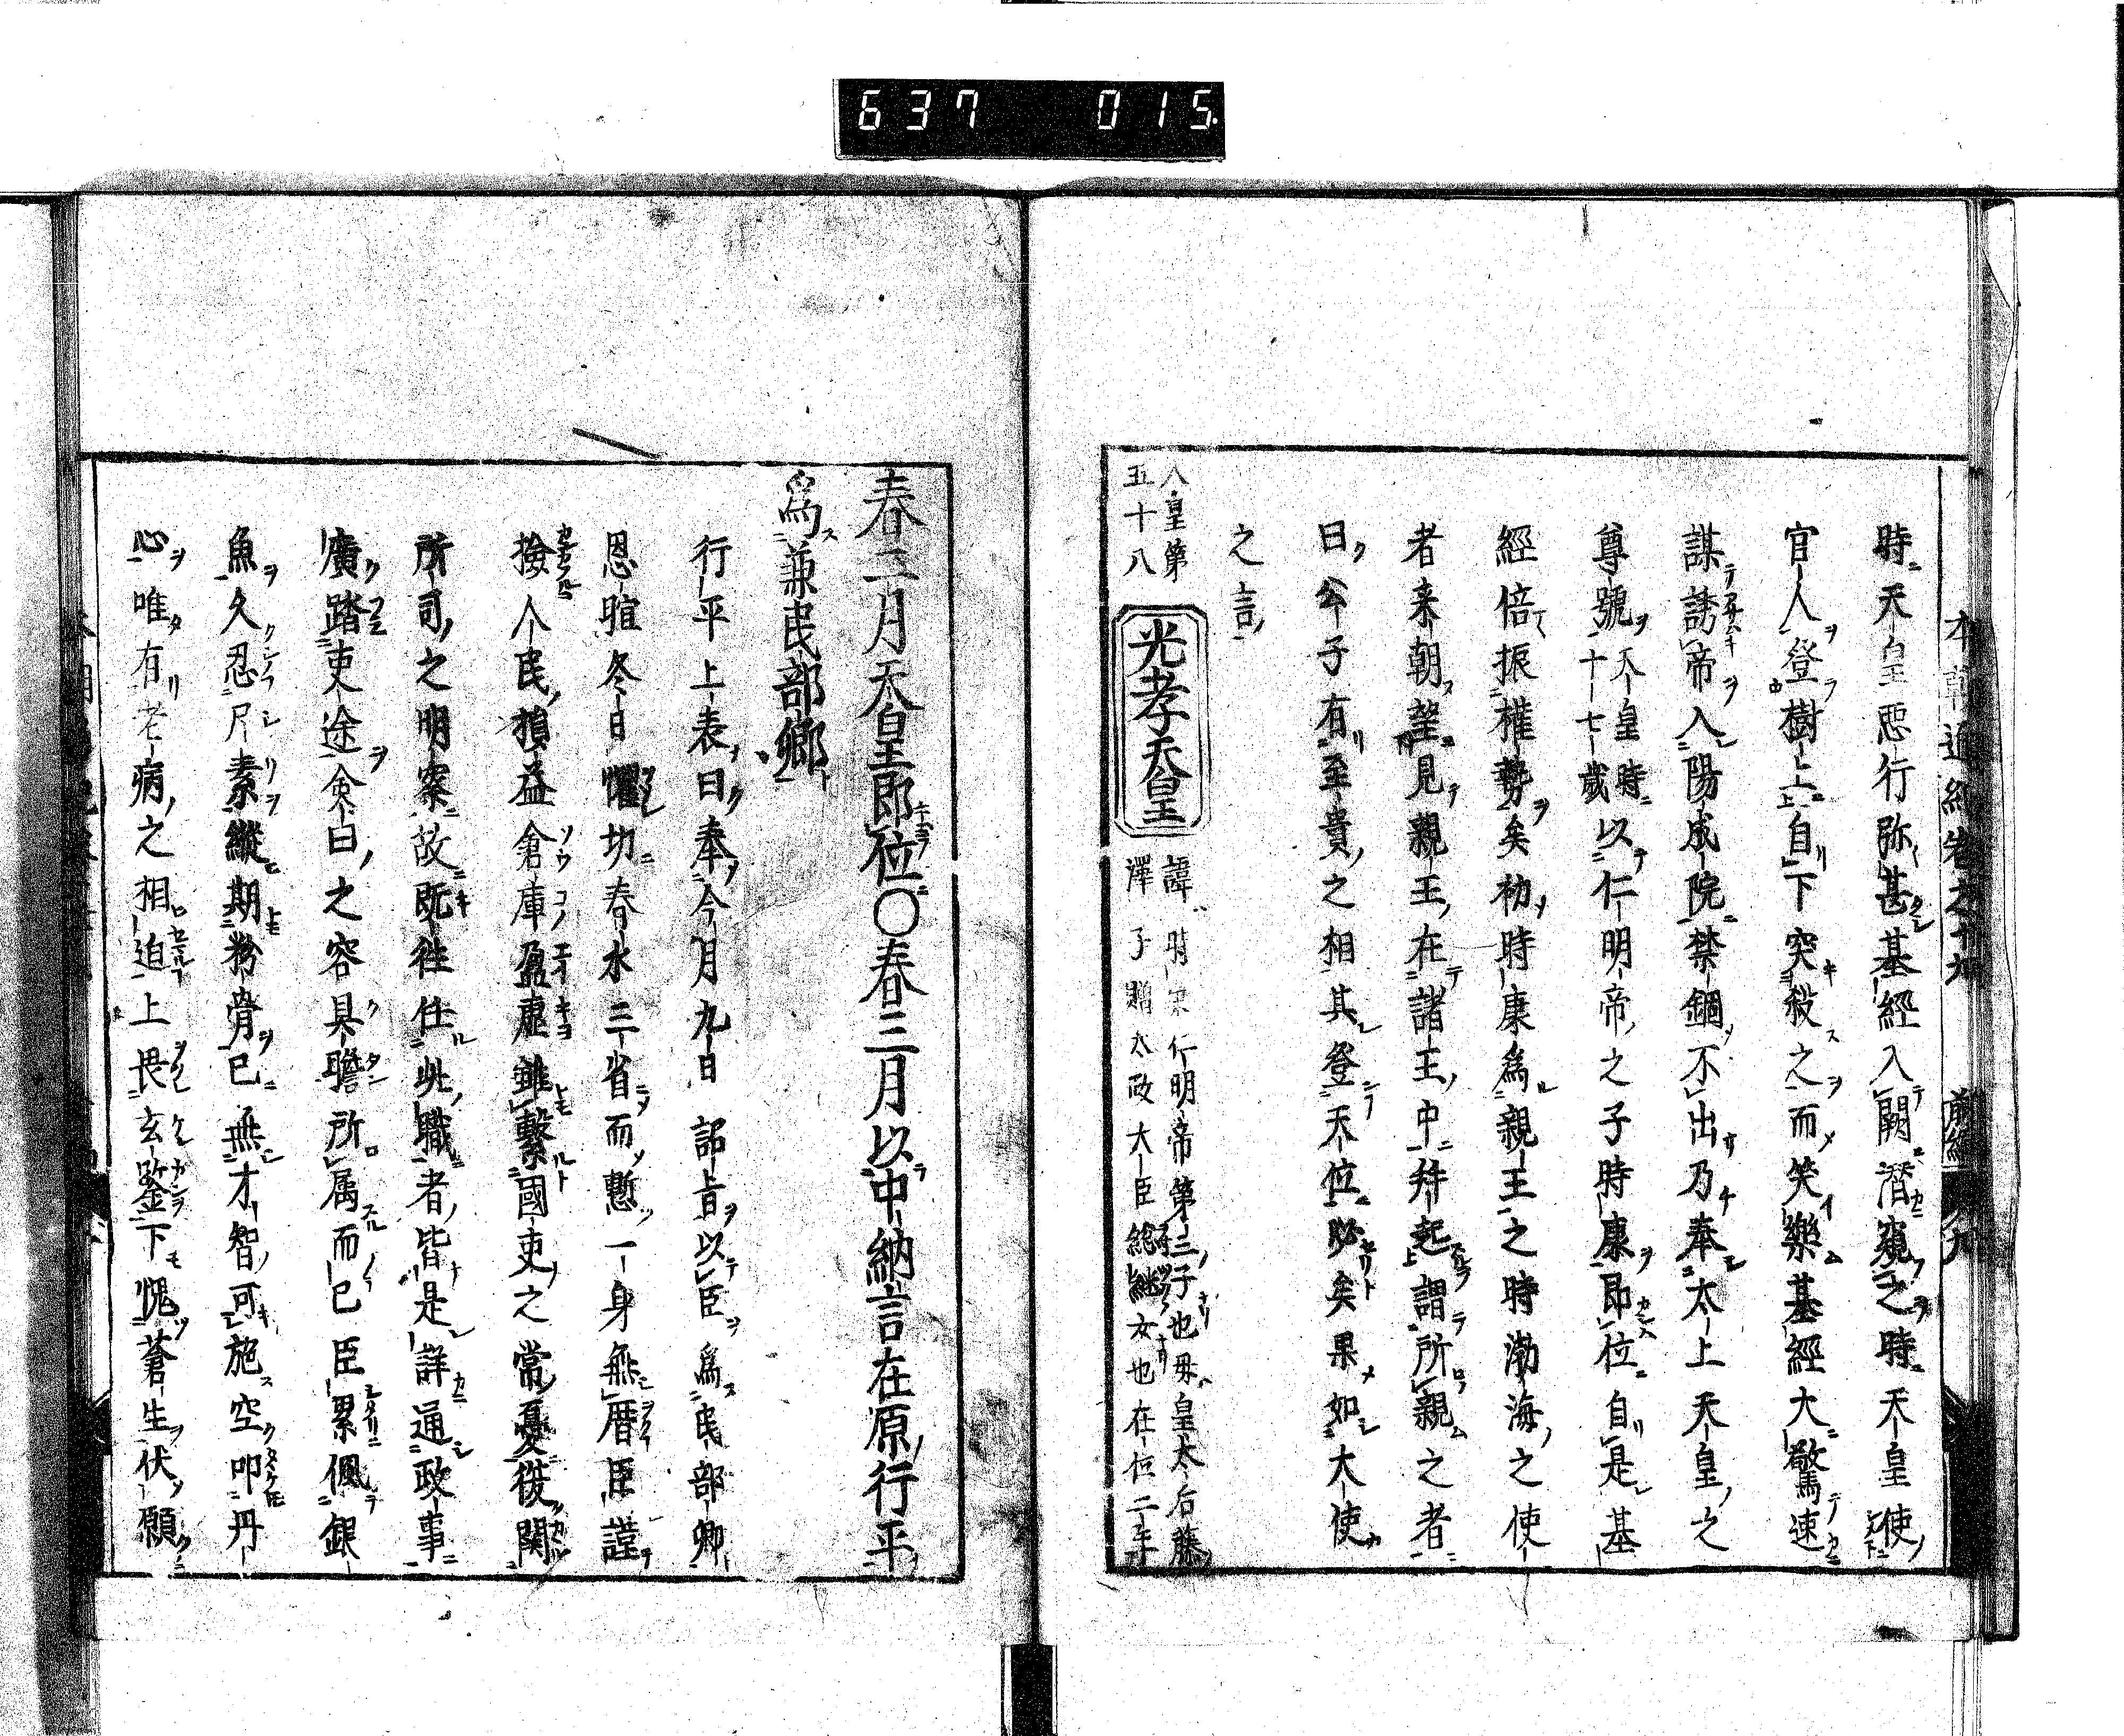 637 015
本朝通紀卷之十九 前編
時天皇惡行弥甚基經入闕潛窺之時天皇使
官人登樹上自下突殺之而笑樂基經大驚速
謀誘帝入陽成院禁錮不出乃奉太上天皇之
尊號天皇時十七歲以仁明帝之子時康即位自是基
經倍振權勢矣初時康為親王之時渤海之使
者来朝望見親王在諸王中拜起謂所親之者
曰公子有至貴之相其登天位必矣果如大使
之言
人皇第五十八
光孝天皇
諱時康仁明帝第三子也母皇太后藤
澤子贈太政大臣總継女也在位二年
春二月天皇即位○春三月以中納言在原行平
爲兼民部卿
行平上表曰奉今月九日詔旨以臣爲民部卿
恩暄冬日懼切春水三省而慙一身無厝臣謹
撿人民損益倉庫盈虛雖繫國吏之常憂從関
所司之明察故既往任此職者皆是詳通政事
廣踏吏途僉曰之容具瞻所属而已臣累佩銀
魚久忍尺素縱期粉骨已無才智可施空叩丹
心唯有老病之相迫上畏玄鑒下愧蒼生伏願